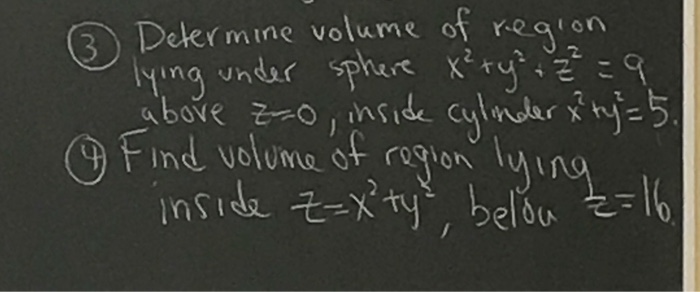 ③ Determine volume of region
lying under sphere x²+y²+z²=9
above z=0, inside cylinder x²+y²=5.
④ Find volume of region lying
inside z=x²+y², below z=16.